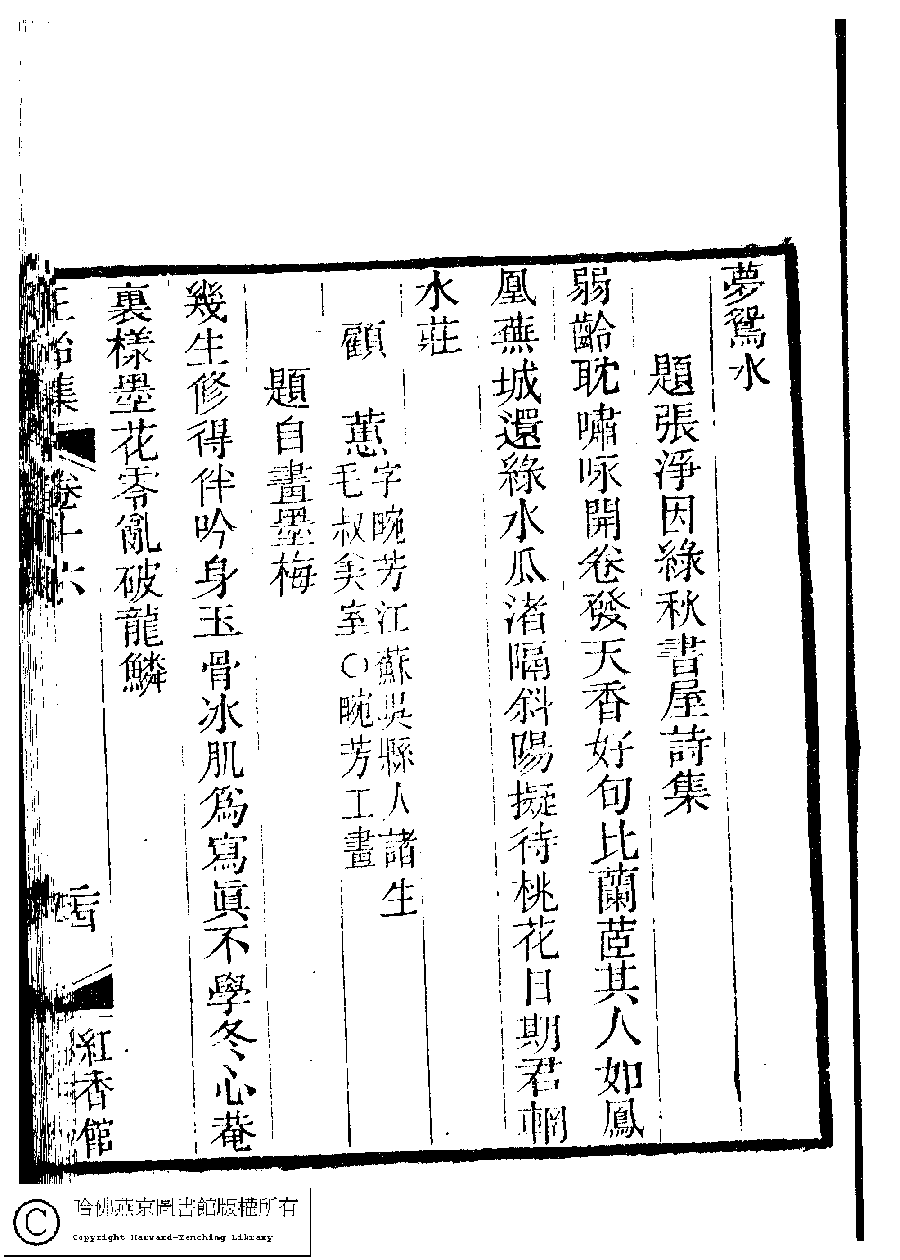 夢鴛水
題張淨因綠秋書屋詩集
弱齡耽嘯咏開卷發天香好句比蘭茝其人如鳳
凰蕪城還綠水瓜渚隔斜陽擬待桃花日期君輞
水莊
顧蕙字畹芳江蘇吳縣人諸生
毛叔美室〇畹芳工畫
題自畫墨梅
幾生修得伴吟身玉骨冰肌爲寫眞不學冬心菴
裏樣墨花零亂破龍鱗
正始集
卷十六
紅香館
哈佛燕京圖書館版權所有
Copyright Harvard-Yenching Library